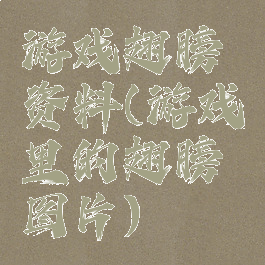 游戏翅膀
资料(游戏
里的翅膀
图片)